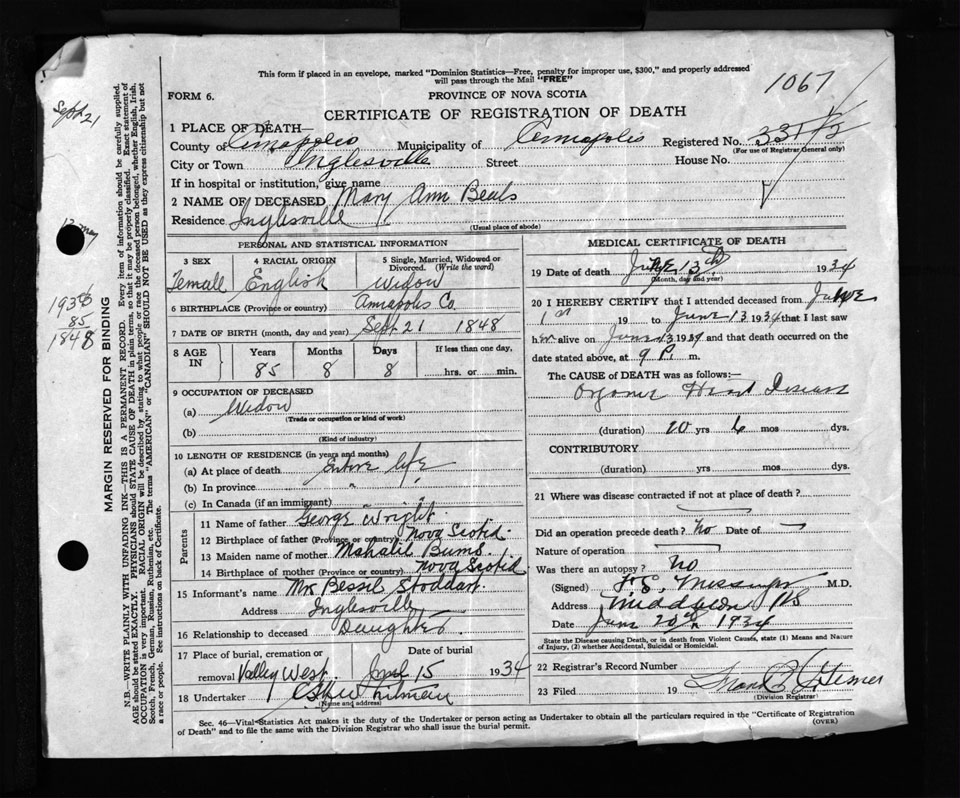 1067
This form if placed in an envelope, marked "Dominion Statistics—Free, penalty for improper use, $300," and properly addressed
will pass through the Mail "FREE"
FORM 6.
PROVINCE OF NOVA SCOTIA
CERTIFICATE OF REGISTRATION OF DEATH
1 PLACE OF DEATH—
County of Annapolis Municipality of Annapolis Registered No.
(For use of Registrar General only)
City or Town Inglesville Street House No.
If in hospital or institution, give name
2 NAME OF DECEASED Mary Ann Beals
Residence Inglesville
(Usual place of abode)
PERSONAL AND STATISTICAL INFORMATION
3 SEX 4 RACIAL ORIGIN 5 Single, Married, Widowed or
Divorced. (Write the word)
Female English Widow
6 BIRTHPLACE (Province or country) Annapolis Co.
7 DATE OF BIRTH (month, day and year) Sept 21 1848
8 AGE IN Years Months Days If less than one day,
85 8 8 hrs. or min.
9 OCCUPATION OF DECEASED
(a) Widow
(Trade or occupation or kind of work)
(b)
(Kind of industry)
10 LENGTH OF RESIDENCE (in years and months)
(a) At place of death Entire life
(b) In province "
(c) In Canada (if an immigrant)
Parents
11 Name of father George Wright
12 Birthplace of father (Province or country) Nova Scotia
13 Maiden name of mother
14 Birthplace of mother (Province or country) Nova Scotia
15 Informant's name Mrs Bessie Stoddart
Address Inglesville
16 Relationship to deceased Daughter
17 Place of burial, cremation or Date of burial
removal Valley West June 15 1934
18 Undertaker
(Name and address)
MEDICAL CERTIFICATE OF DEATH
19 Date of death June 13th 1934
(Month, day and year)
20 I HEREBY CERTIFY that I attended deceased from June
1st 19 to June 13 1934 that I last saw
her alive on June 13 1934 and that death occurred on the
date stated above, at 9 P. m.
The CAUSE OF DEATH was as follows:—
Organic Heart Disease
(duration) 10 yrs 6 mos dys.
CONTRIBUTORY
(duration) yrs. mos. dys.
21 Where was disease contracted if not at place of death?
Did an operation precede death? No Date of
Nature of operation
Was there an autopsy? No
(Signed) M.D.
Address Middleton NS
Date June 20th 1934
State the Disease causing Death, or in death from Violent Causes, state (1) Means and Nature
of Injury, (2) whether Accidental, Suicidal or Homicidal.
22 Registrar's Record Number
23 Filed 19
(Division Registrar)
Sec. 46—Vital Statistics Act makes it the duty of the Undertaker or person acting as Undertaker to obtain all the particulars required in the "Certificate of Registration
of Death" and to file the same with the Division Registrar who shall issue the burial permit.
(OVER)
Sept 21
85
1848
MARGIN RESERVED FOR BINDING
N.B.—WRITE PLAINLY WITH UNFADING INK—THIS IS A PERMANENT RECORD. Every item of information should be carefully supplied.
AGE should be stated EXACTLY. PHYSICIANS should STATE CAUSE OF DEATH in plain terms, so that it may be properly classified. Exact statement of
OCCUPATION is very important. RACIAL ORIGIN will be described by stating to what people or race the deceased person belonged, whether English, Irish,
Scotch, French, German, Russian, Ruthenian, etc. The terms "AMERICAN" or "CANADIAN" SHOULD NOT BE USED as they express citizenship but not
a race or people. See instructions on back of Certificate.